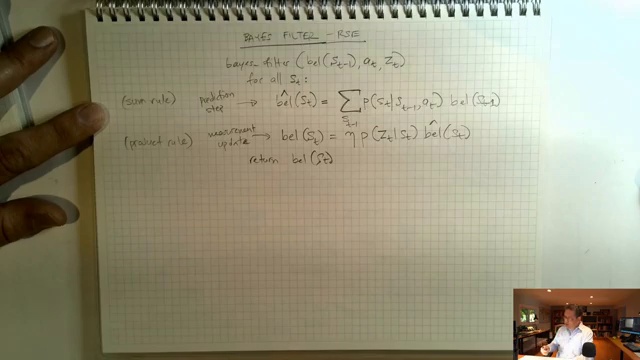 BAYES FILTER - RSE
bayes_filter (bel(S_{t-1}), a_t, Z_t)
for all S_t:
(sum rule) prediction step → b̂el(S_t) = ∑_{S_{t-1}} p(S_t|S_{t-1}, a_t) bel(S_{t-1})
(product rule) measurement update → bel(S_t) = η p(Z_t|S_t) b̂el(S_t)
return bel(S_t)